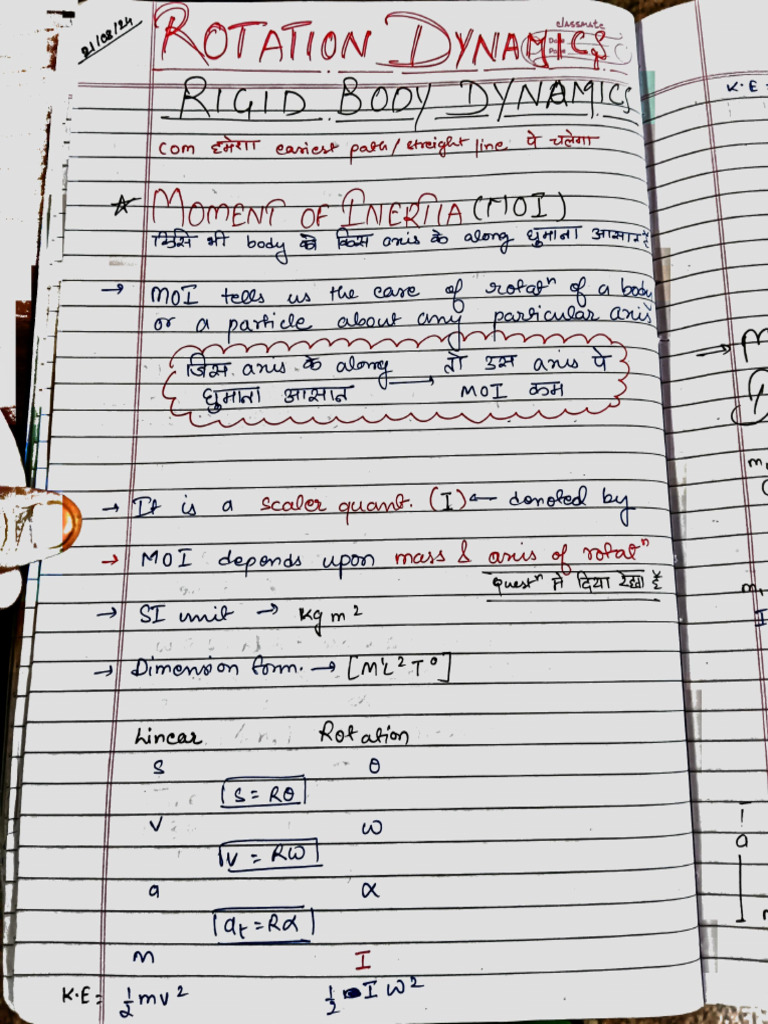 21/08/24
classmate
ROTATION DYNAMICS
RIGID BODY DYNAMICS
COM हमेशा easiest path/streight line पे चलेगा
☆ MOMENT OF INERTIA (MOI)
किसि भी body को किस axis के along घुमाना आसान है
→ MOI tells us the ease of rotatⁿ of a body
or a particle about any particular axis
जिस axis के along → तो उस axis पे
घुमाना आसान MOI कम
→ It is a scaler quant. (I) ← denoted by
→ MOI depends upon mass & axis of rotatⁿ
questⁿ में दिया रेहता है
→ SI unit → kg m²
→ Dimension form. → [M¹L²T⁰]
Linear Rotation
S θ
S = Rθ
V ω
V = Rω
a α
aₜ = Rα
m I
K.E = ½ mv² ½ I ω²
K.E =
a